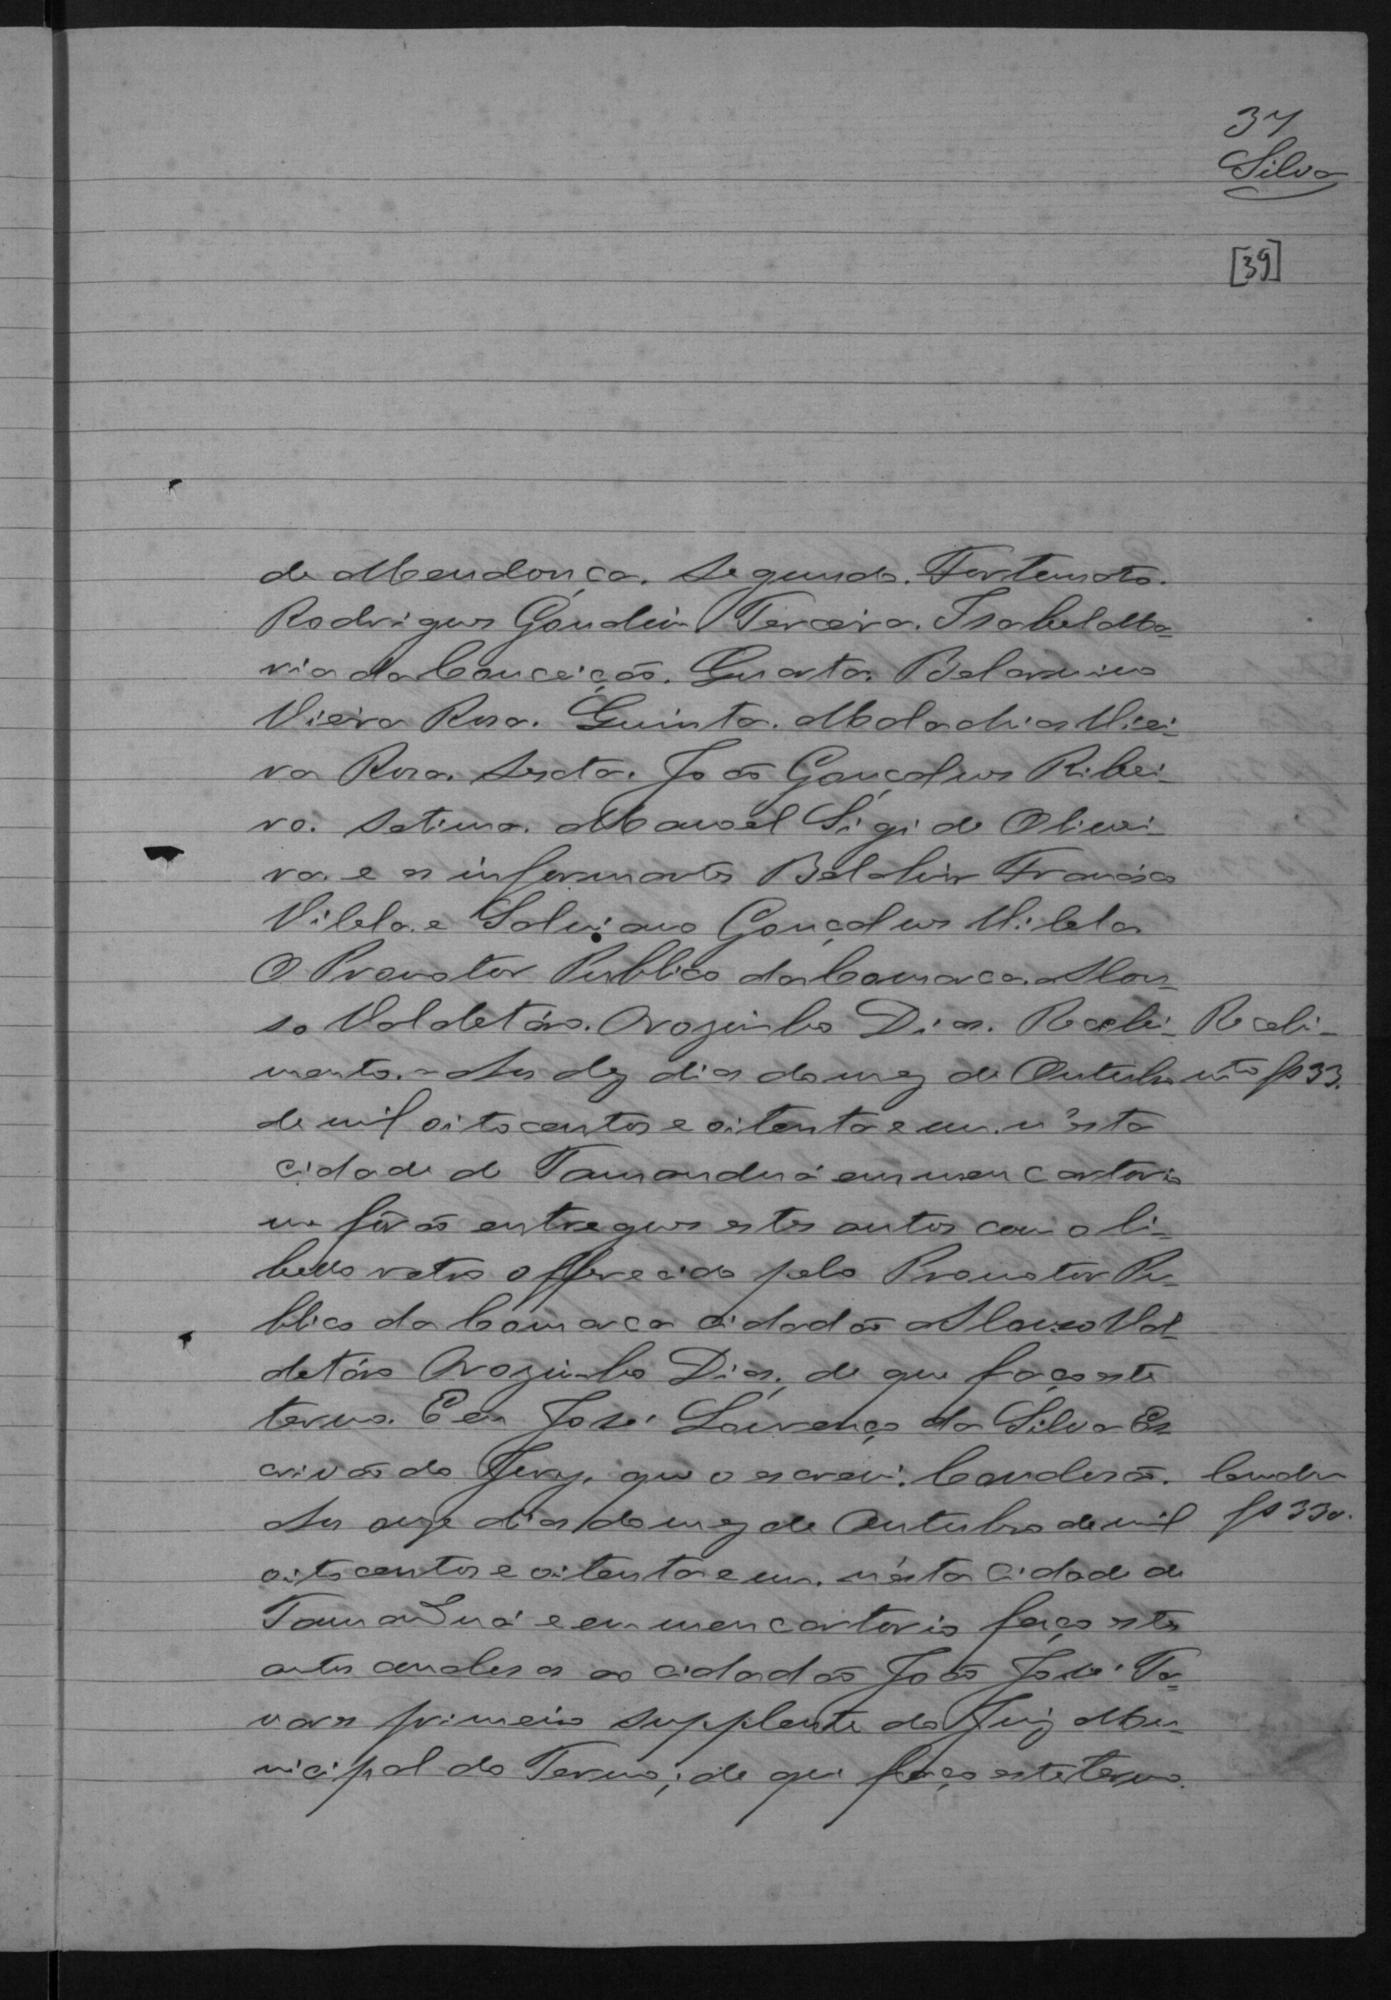 37
Silva
[39]
de Mendonça. Segunda. Fortunato
Rodrigues Gondim Terceira. Isabel Ma-
ria da Conceição. Quarta. Belarmino
Vieira Rosa. Quinta. Malachias Viei-
ra Rosa. Sexta. João Gonçalves Ribei-
ro. Setima. Manoel Ligi de Olivei-
ra. e as informantes Balduir Francisco
Vilela. e Salviano Gonçalves Vilela
O Promotor Publico da Comarca. Alon-
so Valdetáro. Orozimbo Dias. Recebi-
mento. Aos dez dias do mez de Outubro
de mil oito centos e oitenta e um. n'esta
cidade de Tamanduá em meu cartorio
me fôrão entregues estes autos com o li-
bello retro offerecido pelo Promotor Pu-
blico da Comarca cidadão Alonso Val-
detáro Orozimbo Dias, de que faço este
termo. E eu José Lourenço da Silva Es
crivão do Jury, que o escrevi. Conclusão.
Aos onze dias do mez de Outubro de mil
oito centos e oitenta e um. nésta cidade de
Tamanduá e em meu cartorio faço estes
autos conclusos ao cidadão João José Ta-
vares primeiro supplente do Juiz Mu-
nicipal do Termo; de que faço este termo.
Recebi-
mto fs 33.
Conclu
fs 33v.